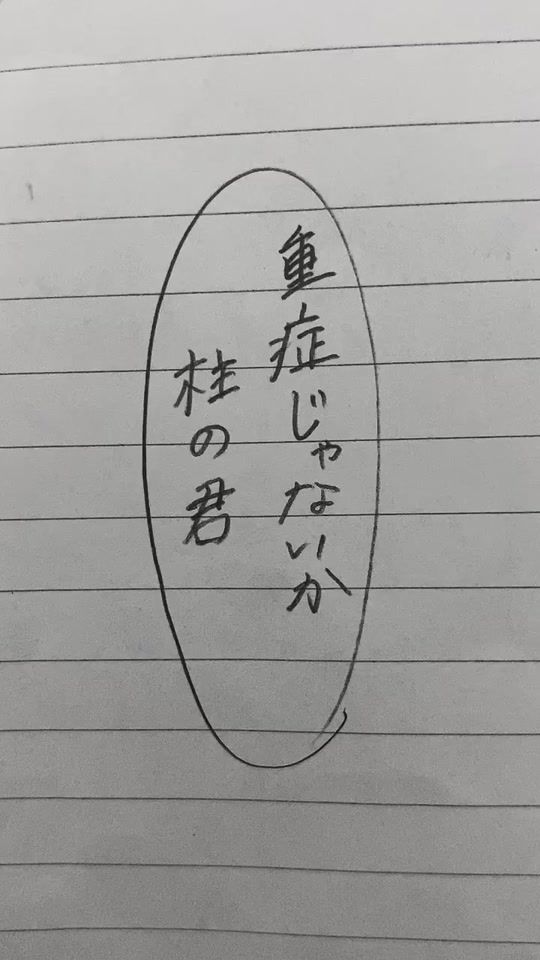 重症じゃないか
桂の君